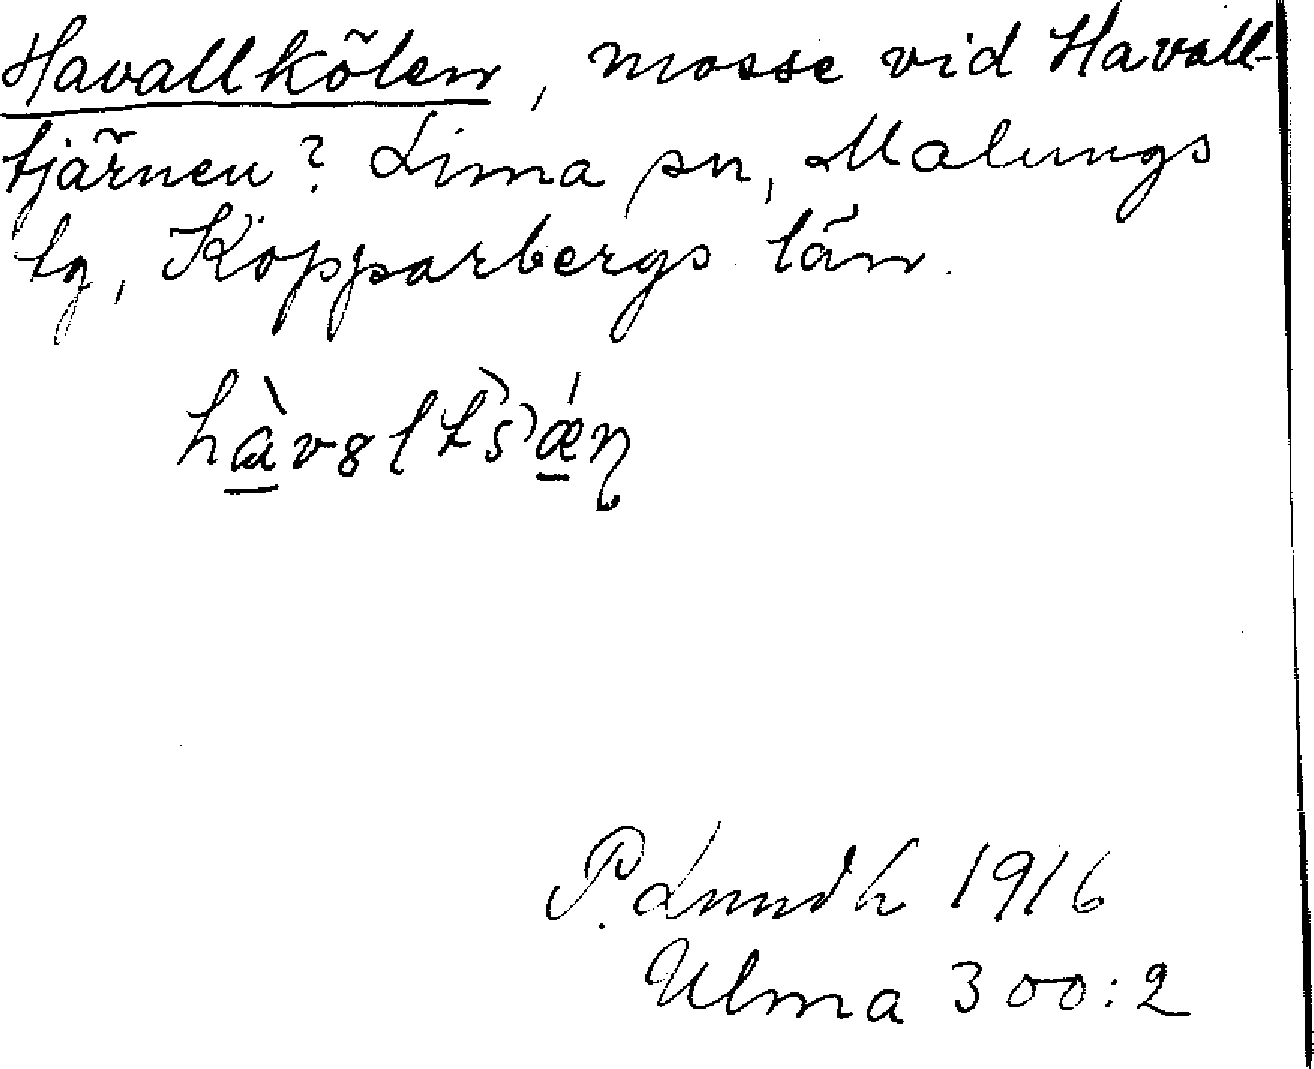 Havallkölen, mosse vid Havall-
tjärnen? Lima sn, Malungs
tg, Kopparbergs län.
hàvəltʂǽɳ
P. Lunnd h 1916
Ulma 300:2